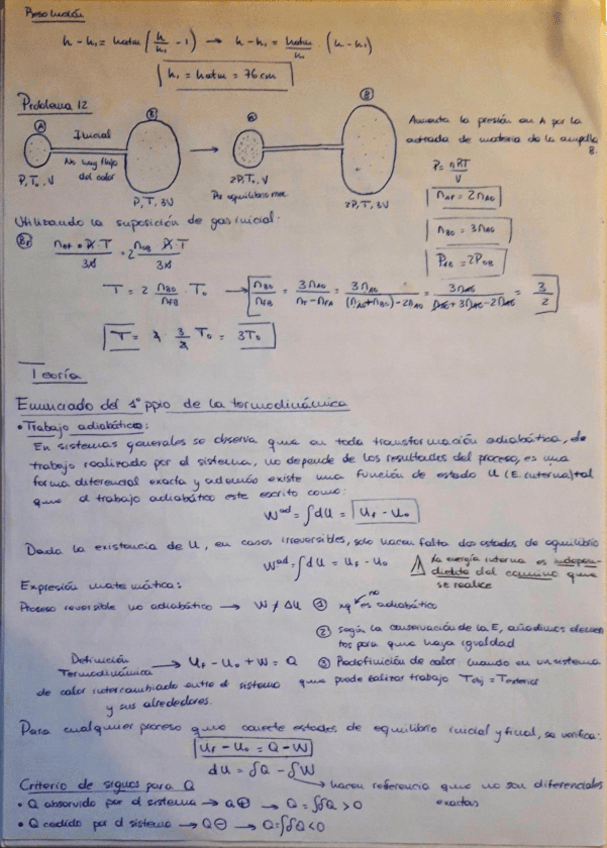 Resolución
h - h₁ = hatm (h/h₁ - 1) → h - h₁ = hatm/h₁ (h - h₁)
h₁ = hatm = 76 cm
Problema 12
A Inicial B
No hay flujo del calor
P, T₀, V
P, T, 3V
→
A B
2P, T₀, V
Pre equilibrio
2P, T, 3V
Aumenta la presión en A por la
entrada de materia de la ampolla
B.
P = nRT/V
nAF = 2nA0
nB0 = 3nA0
PFB = 2P0B
Utilizando la suposición de gas inicial:
T = 2 nB0/nFB · T₀ → nB0/nFB = 3nA0/(nT - nFA) = 3nA0/((nA0+nB0) - 2nA0) = 3nA0/(nA0 + 3nA0 - 2nA0) = 3/2
T = 2 · 3/2 T₀ = 3T₀
Teoría
Enunciado del 1º ppio de la termodinámica
• Trabajo adiabático:
En sistemas generales se observa que en toda transformación adiabática, el
trabajo realizado por el sistema, no depende de los resultados del proceso, es una
forma diferencial exacta y además existe una función de estado U (E. interna) tal
que el trabajo adiabático este escrito como:
Wᵃᵈ = ∫dU = Uf - U₀
Dada la existencia de U, en casos irreversibles, solo hacen falta dos estados de equilibrio
Wᵃᵈ = ∫dU = Uf - U₀
⚠ La energía interna es indepen-
diente del camino que
se realice
Expresión matemática:
Proceso reversible no adiabático → W ≠ ΔU ① xq no es adiabático
② según la conservación de la E, añadimos elemen
tos para que haya igualdad
Definición
Termodinámica → Uf - U₀ + W = Q ③ Redefinición de calor cuando en un sistema
de calor intercambiado entre el sistema que puede realizar trabajo Tobj = Texterior
y sus alrededores.
Para cualquier proceso que conecte estados de equilibrio inicial y final, se verifica:
Uf - U₀ = Q - W
dU = δQ - δW
→ hacen referencia que no son diferenciales
exactas
Criterio de signos para Q
• Q absorbido por el sistema → Q⊕ → Q = ∫δQ > 0
• Q cedido por el sistema → Q⊖ → Q = ∫δQ < 0